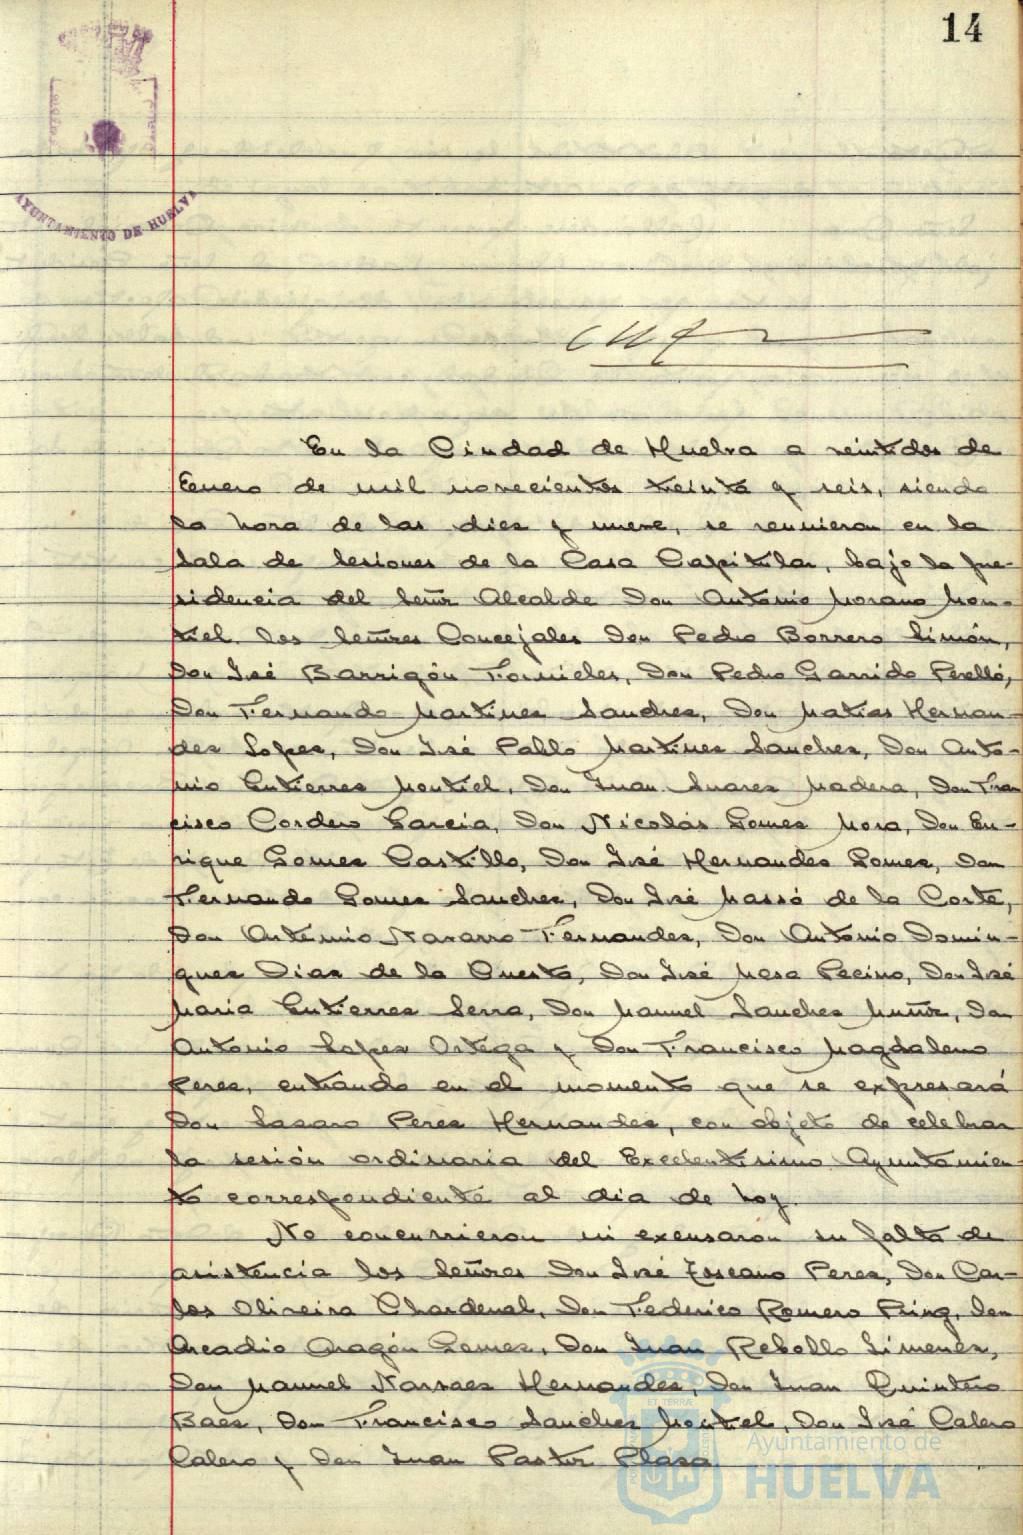 14
AYUNTAMIENTO DE HUELVA
En la Ciudad de Huelva a veintidos de
Enero de mil novecientos treinta y seis, siendo
la hora de las diez y nueve, se reunieron en la
Sala de Sesiones de la Casa Capitular, bajo la pre-
sidencia del Señor Alcalde Don Antonio Morano Mon-
tiel los Señores Concejales Don Pedro Borrero Limón,
Don José Barrigón Fornieles, Don Pedro Garrido Perelló,
Don Fernando Martinez Sanchez, Don Matias Hernan-
dez Lopez, Don José Pablo Martinez Sanchez, Don Anto-
nio Gutierrez Montiel, Don Juan Suarez Madera, Don Fran
cisco Cordero Garcia, Don Nicolás Gomez Mora, Don En-
rique Gomez Castillo, Don José Hernandez Gomez, Don
Fernando Gomez Sanchez, Don José Massó de la Corte,
Don Antonio Navarro Fernandez, Don Antonio Domin-
guez Diaz de la Cuesta, Don José Mesa Pecino, Don José
Maria Gutierrez Serra, Don Manuel Sanchez Muñoz, Don
Antonio Lopez Ortega y Don Francisco Magdaleno
Perez, entrando en el momento que se expresará
Don Lazaro Perez Hernandez, con objeto de celebrar
la sesión ordinaria del Excelentisimo Ayuntamien-
to correspondiente al dia de hoy.
No concurrieron ni excusaron su falta de
asistencia los Señores Don José Toscano Perez, Don Car-
los Oliveira Chardenal, Don Federico Romero Don
Arcadio Aragón Gomez, Don Juan Rebollo Jimenez,
Don Manuel Narvaez Hernandez, Don Juan Quintero
Baez, Don Francisco Sanchez Montiel, Don José Calero
Calero y Don Juan Pastor Plaza
Ayuntamiento de
HUELVA